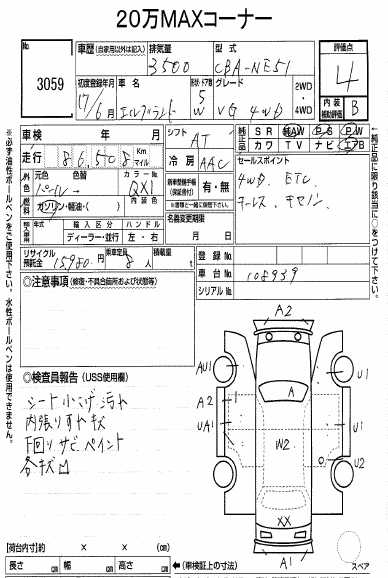 20万MAXコーナー
No. 3059
車歴 (自家用以外は記入) 排気量 3500 型式 CBA-NE51
評価点 4
初度登録年月 17/6月 車名 エルグランド ドア形状 5W グレード VG 4WD 2WD・4WD
内装補助評価 B
車検 年 月
走行 86,508 Km マイル
シフト AT
冷房 AAC
純正品 SR AW PS PW カワ TV ナビ エアB
外色 元色 パール 色替 カラーNo. QX1
内装色
燃料 ガソリン・軽油・( )
有・無
セールスポイント
4WD. ETC
キーレス. キセノン
輸入車 年式 輸入区分 ハンドル
ディーラー・並行 左・右
名義変更期限
月 日
リサイクル預託金 15,980円 乗車定員 8人 積載量 t
登録No.
車台No. 108939
シリアルNo.
◎注意事項 (修復・不具合箇所および状態等)
◎検査員報告 (USS使用欄)
シート小こげ汚れ
内張りすれキズ
下回りサビペイント
各キズ凹
A2
AU1
U1
A
A2
UA1
U1
W2
U2
XX
A1
スペア
【荷台内寸】約 × × (cm)
長さ cm 幅 cm 高さ cm
(車検証上の寸法)
※必ず油性ボールペンをご使用下さい。水性ボールペンは使用できません。
↑純正品に限り該当に○をつけて下さい。